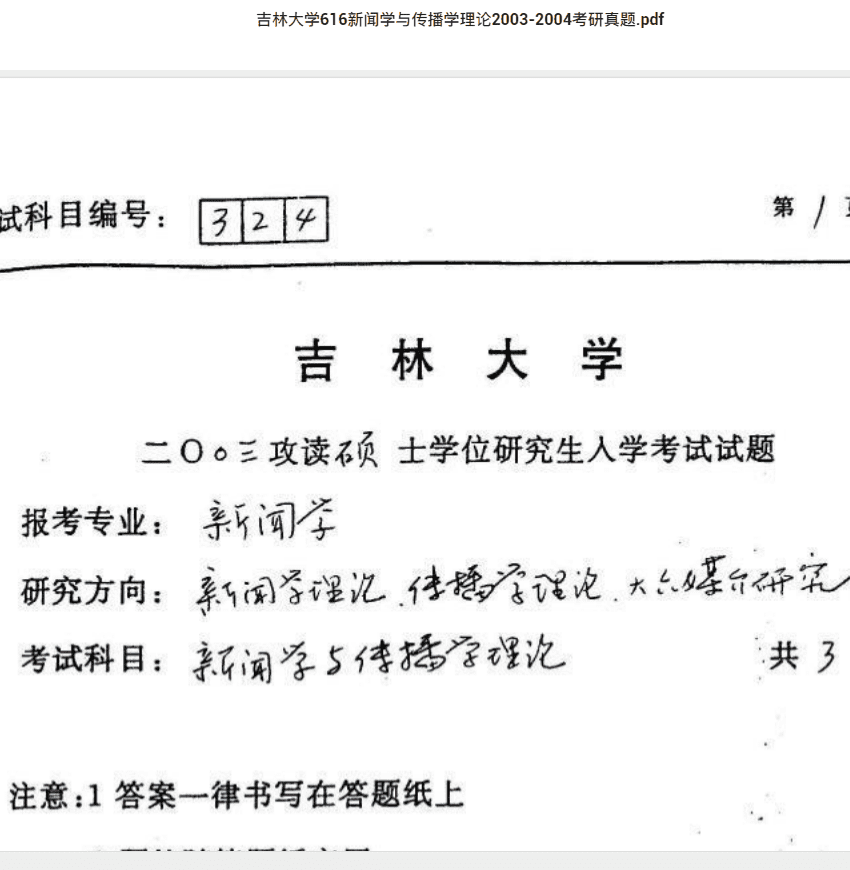 吉林大学616新闻学与传播学理论2003-2004考研真题.pdf
试科目编号： 324
第 1
吉 林 大 学
二〇〇三攻读硕 士学位研究生入学考试试题
报考专业： 新闻学
研究方向： 新闻学理论、传播学理论、大众媒介研究
考试科目： 新闻学与传播学理论
共 3
注意:1 答案一律书写在答题纸上